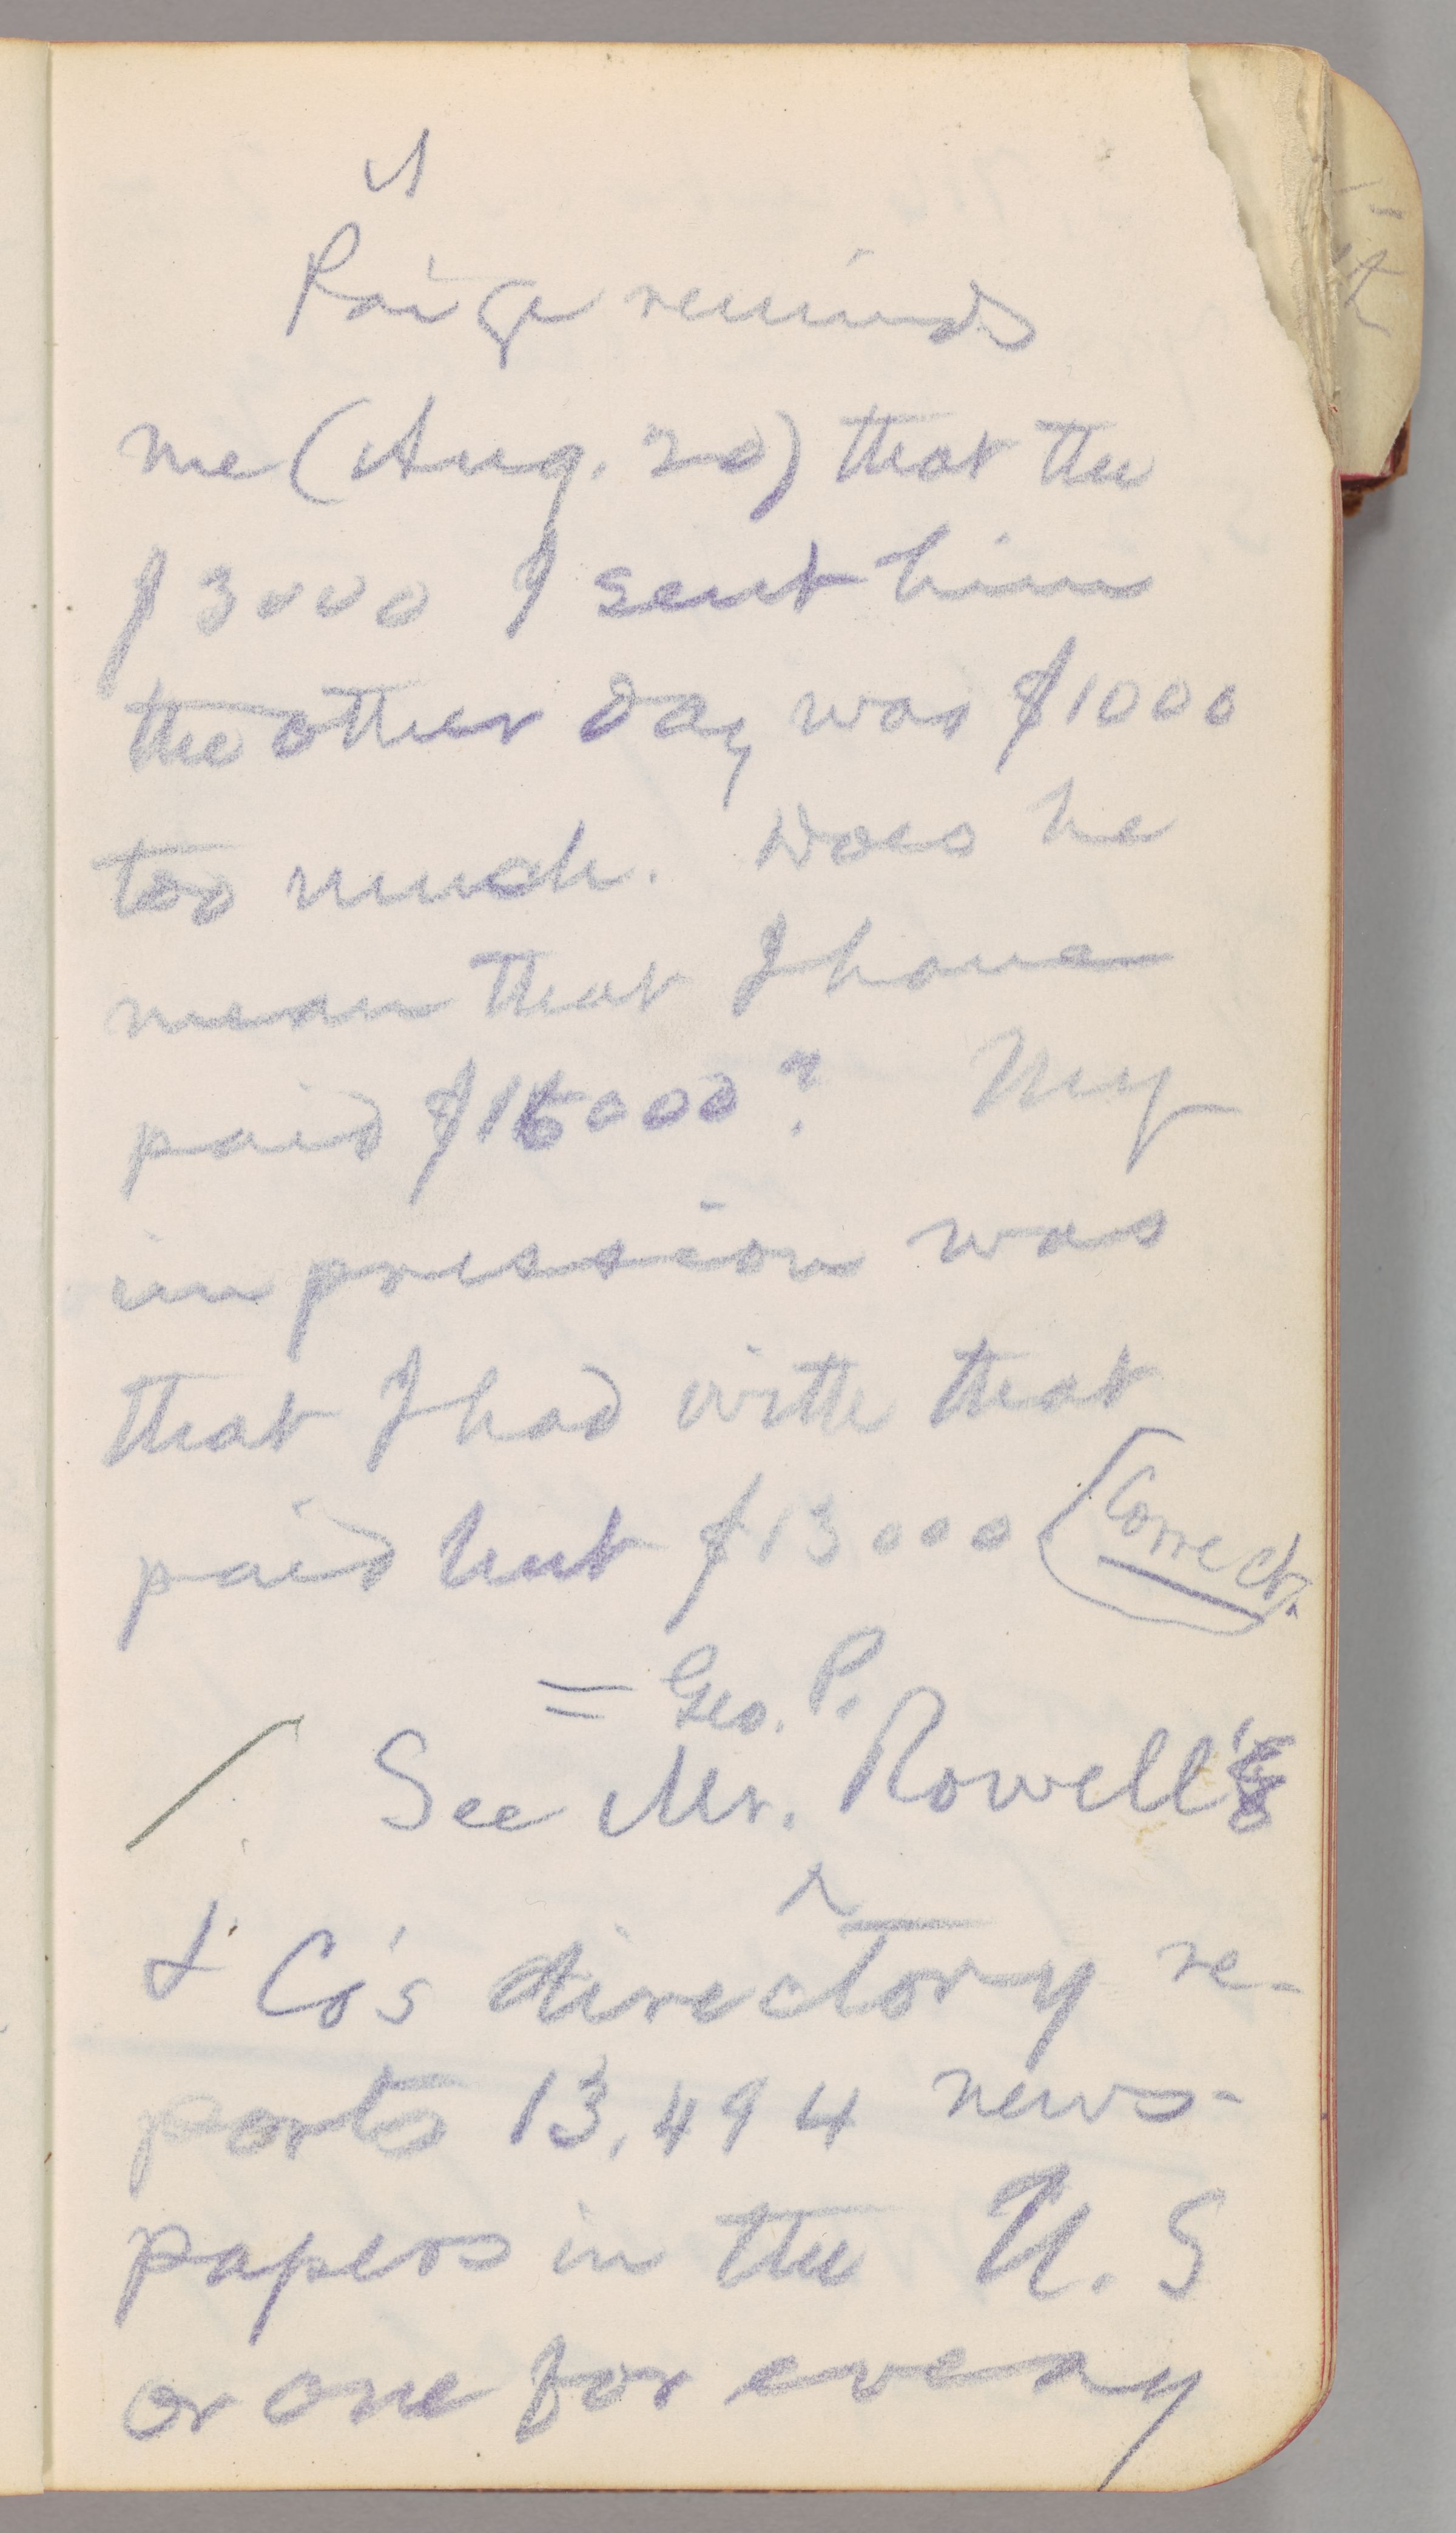 Paige reminds
me (Aug. 20) that the
$3000 I sent him
the other day was $1000
too much. Does he
mean that I have
paid $16000? My
impression was
that I had with that
paid but $13000 (Correct.
= Geo. P.
See Mr. Rowell's
& Co's directory re-
ports 13,494 news-
papers in the U. S
or one for every